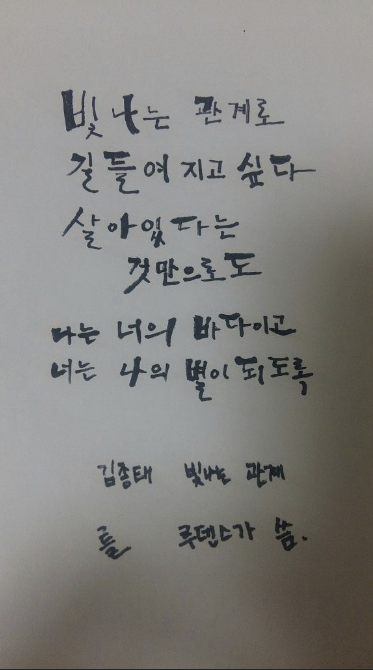 빛나는 관계로
길들여 지고 싶다
살아있다는
것만으로도
나는 너의 바다이고
너는 나의 별이 되도록
김종태 빛나는 관계
를 루덴스가 씀.